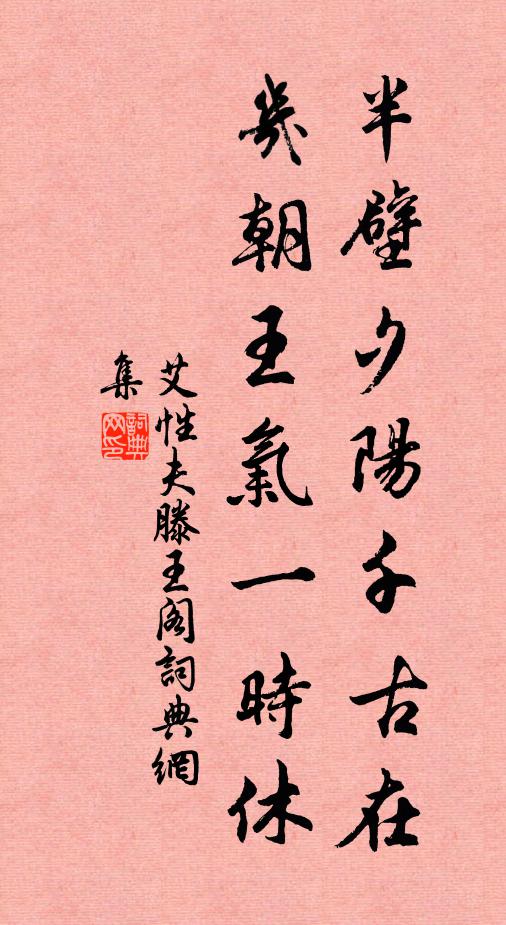 半壁夕陽千古在
幾朝王氣一時休
艾性夫滕王阁詞典網
集
詞典网印